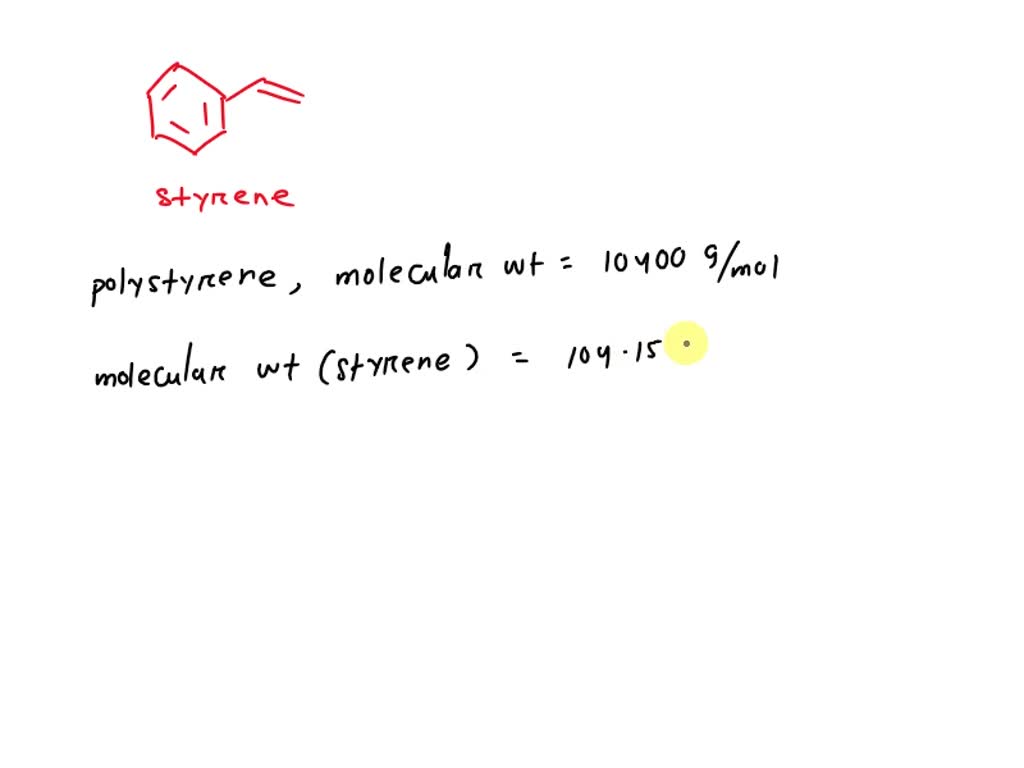 styrene
polystyrene, molecular wt = 10400 g/mol
molecular wt (styrene) = 104.15